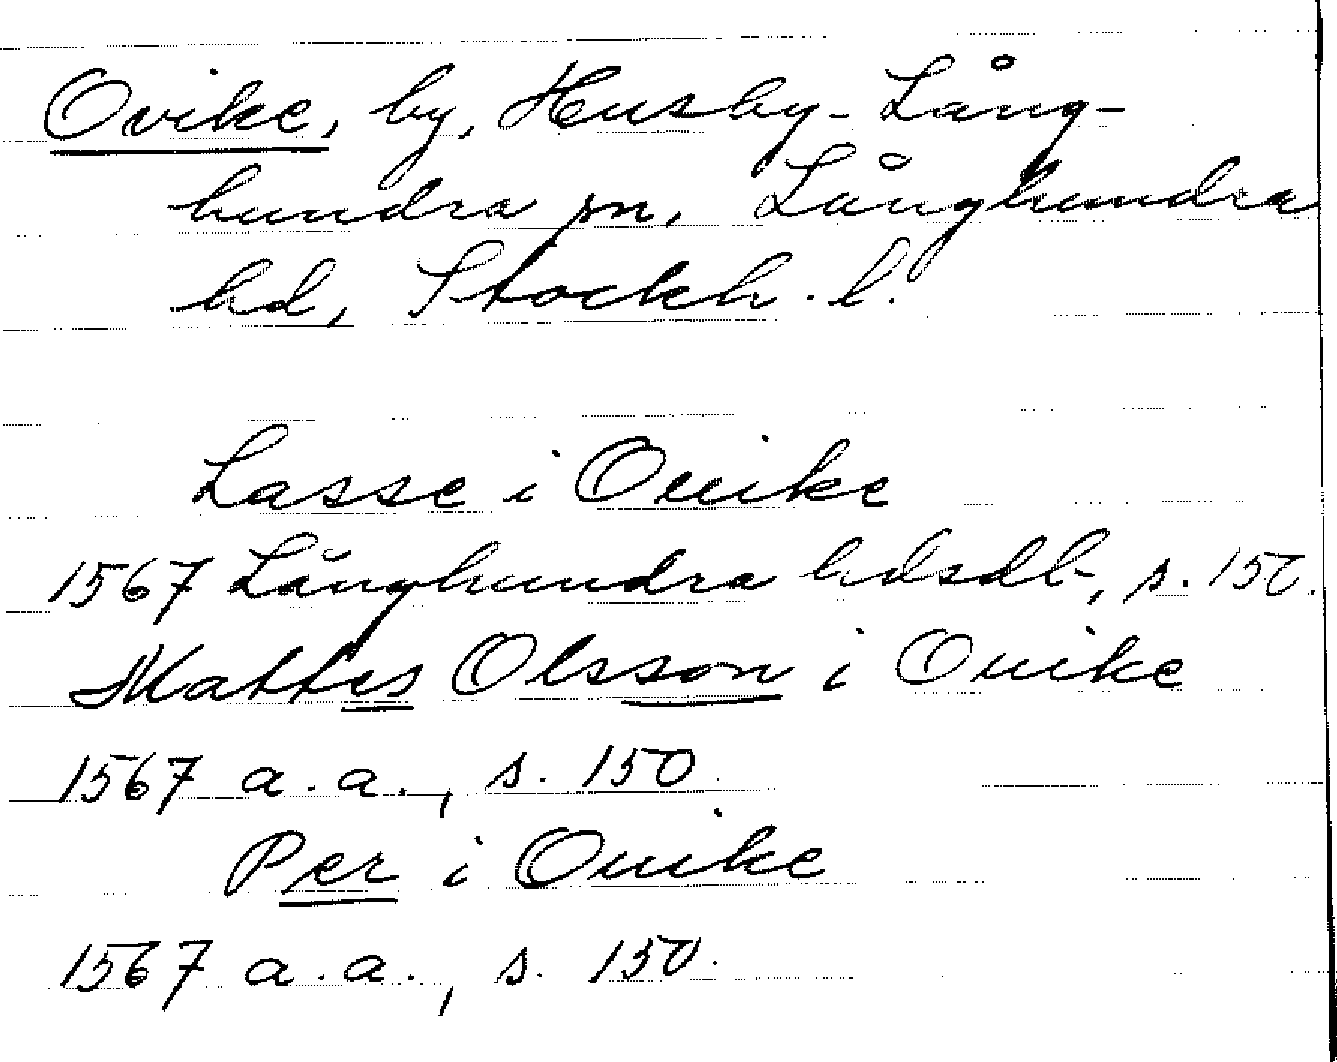 Ovike, by, Husby-Lång-
hundra sn, Långhundra
hd, Stockh. l.
Lasse i Ouike
1567 Långhundra hdsdb, s. 150.
Mattes Olsson i Ouike
1567 a.a., s. 150.
Per i Ouike
1567 a.a., s. 150.